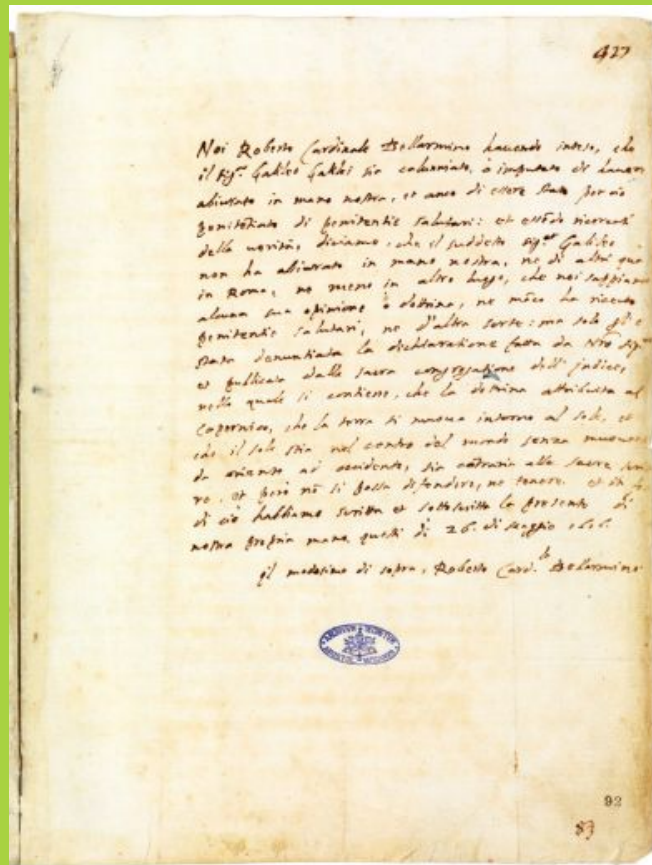 427
Noi Roberto Cardinale Bellarmino havendo inteso, che
il Sigr. Galileo Galilei sia calunniato, ò imputato di haver
abiurato in mano nostra, et anco di essere stato per ciò
penitentiato di penitentie salutari: et essẽdo ricercati
della verità, diciamo, che il suddetto sigr. Galileo
non ha abiurato in mano nostra, ne di altri qua
in Roma, ne meno in altro luogo, che noi sappiamo
alcuna sua opinione ò dottrina, ne mãco ha ricevuto
penitentie salutari, ne d'altra sorte: ma solo gl'è
stata denuntiata la dichiaratione fatta da Nro Sigre
et publicata dalla sacra congregatione dell' indice,
nella quale si contiene, che la dottrina attribuita al
Copernico, che la terra si muova intorno al sole, et
che il sole stia nel centro del mondo senza muoversi
da oriente ad occidente, sia cõtraria alle sacre
re, et però nõ si possa difendere, ne tenere. et in
di ciò habbiamo scritta et sottoscritta la presente di
nostra propria mano, questi dì 26. di Maggio 1616.
il medesimo di sopra, Roberto Card.le Bellarmino
92
83